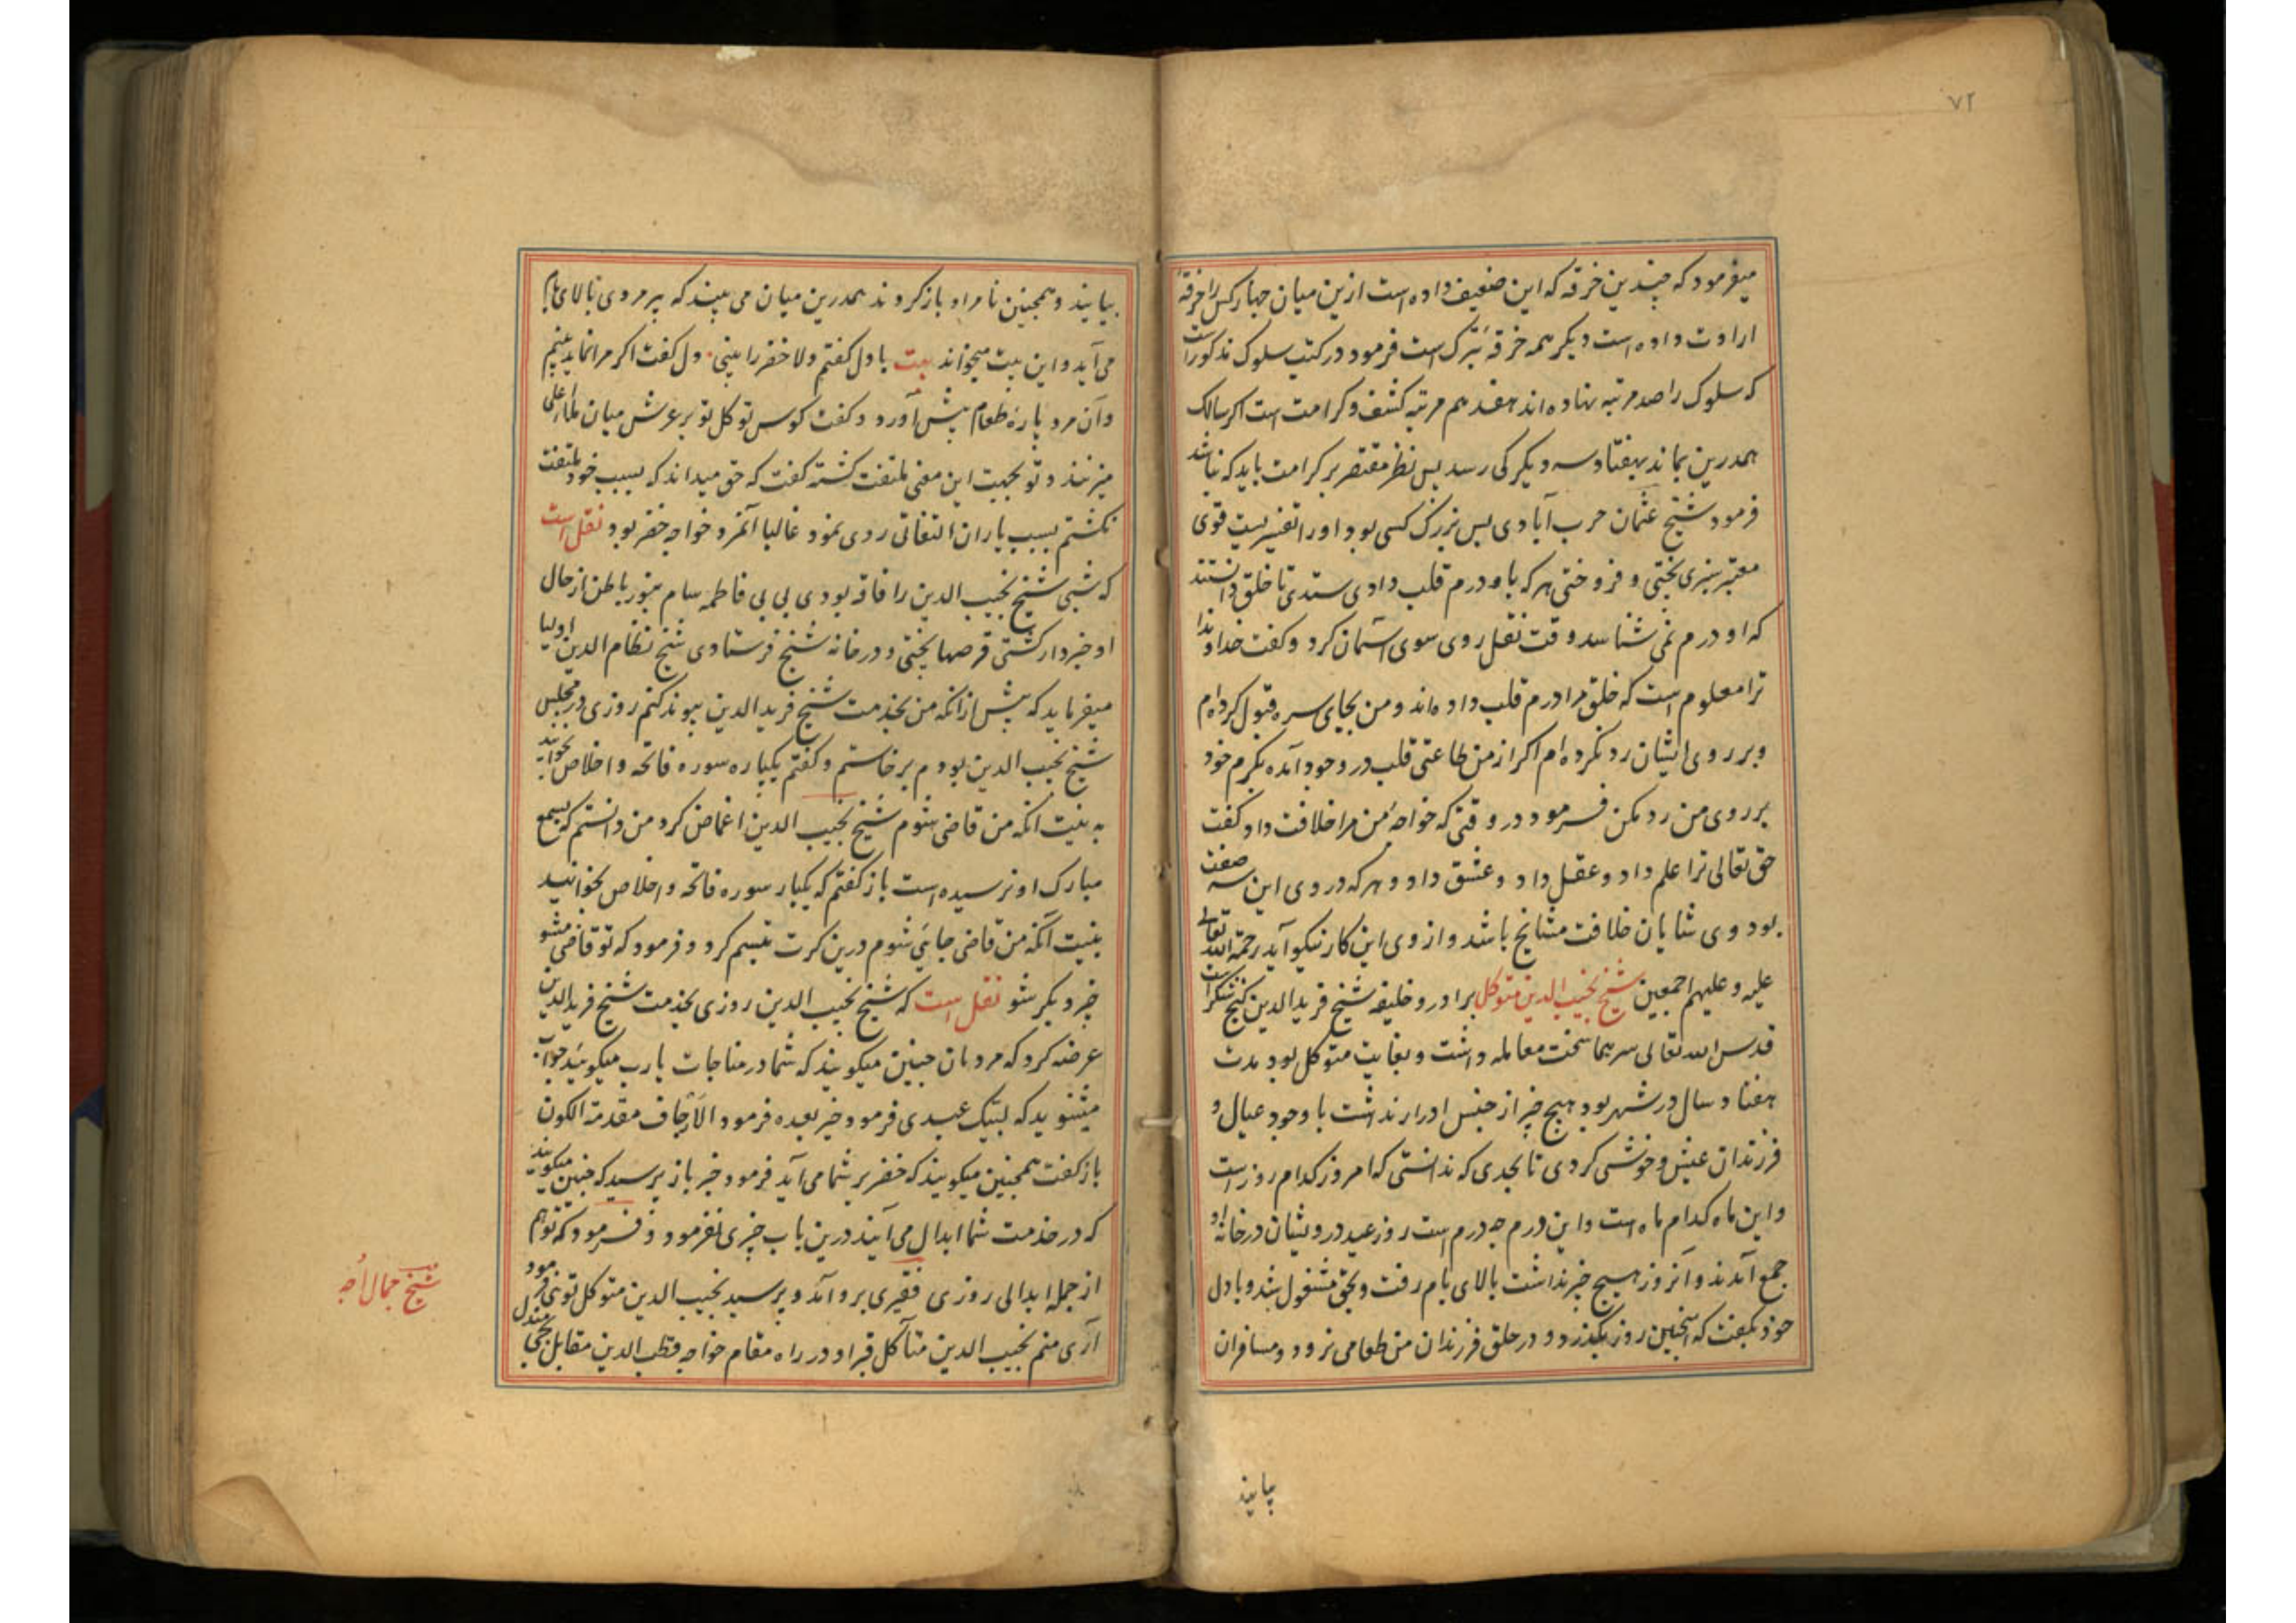 ۷۲
میفرمود که چندین خرقه که این ضعیف داده است ازین میان چهار کس را خرقهٔ
ارادت داده است دیگر همه خرقهٔ تبرک است فرمود در کتب سلوک مذکور است
که سلوک را صد مرتبه نهاده اند هفدهم مرتبه کشف و کرامت است اگر سالک
همدرین بماند بهفتاد و سه دیگر کی رسد پس نظر مقتصر بر کرامت باید که نباشد
فرمود شیخ عثمان حرب آبادی بس بزرگ کسی بود او را تفسیریست قوی
معتبر سبزی پختی و فروختی هر که باو درم قلب دادی ستدی تا خلق دانستند
که او درم نمی شناسد وقت نقل روی سوی آسمان کرد و گفت خداوندا
ترا معلوم است که خلق مرا درم قلب داده اند و من بجای سره قبول کرده ام
و بر روی ایشان رد نکرده ام اگر از من طاعتی قلب در وجود آمده بکرم خود
بر روی من رد مکن فرمود در وقتی که خواجهٔ من مرا خلافت داد گفت
حق تعالی ترا علم داد و عقل داد و عشق داد و هر که در وی این سه صفت
بود وی شایان خلافت مشایخ باشد و از وی این کار نیکو آید رحمة الله تعالی
علیه و علیهم اجمعین شیخ نجیب الدین متوکل برادر و خلیفه شیخ فرید الدین گنج شکر است
قدس الله تعالی سرهما سخت معامله داشت و بغایت متوکل بود مدت
هفتاد سال در شهر بود هیچ چیز از جنس ادرار نداشت با وجود عیال و
فرزندان عیش و خوشی کردی تا بحدی که ندانستی که امروز کدام روز است
و این ماه کدام ماه است و این درم چه درم است روز عید درویشان در خانهٔ او
جمع آمدند و آنروز هیچ چیز نداشت بالای بام رفت و بحق مشغول شد و با دل
خود بگفت که اینچنین روز بگذرد و در حلق فرزندان من طعامی نرود و مسافران
بیایند
بیایند و همچنین نامراد باز گردند همدرین میان می بیند که پیرمردی ببالای بام
می آید و این بیت میخواند بیت با دل گفتم دلا خضر را بینی دل گفت اگر مرا نماید بینم
و آن مرد پارهٔ طعام پیش آورد و گفت کوس توکل تو بر عرش میان ملأ اعلی
میزنند و تو بجهت این معنی ملتفت گشته گفت که حق میداند که بسبب خود ملتفت
نگشتم بسبب یاران التفاتی روی نمود غالبا آنمرد خواجه خضر بود نقل است
که شبی شیخ نجیب الدین را فاقه بودی بی بی فاطمه سام بنور باطن از حال
او خبردار گشتی قرصها پختی و در خانه شیخ فرستادی شیخ نظام الدین اولیا
میفرماید که پیش از آنکه من بخدمت شیخ فرید الدین پیوند کنم روزی در مجلس
شیخ نجیب الدین بودم برخاستم و گفتم یکباره سوره فاتحه و اخلاص بخوانید
به نیت آنکه من قاضی شوم شیخ نجیب الدین اغماض کرد من دانستم که بسمع
مبارک او نرسیده است باز گفتم که یکبار سوره فاتحه و اخلاص بخوانید
بنیت آنکه من قاضی جائی شوم درین کرت تبسم کرد و فرمود که تو قاضی مشو
چیز دیگر شو نقل است که شیخ نجیب الدین روزی بخدمت شیخ فرید الدین
عرضه کرد که مردمان چنین میگویند که شما در مناجات یا رب میگویید جواب
میشنوید که لبیک عبدی فرمود خیر بعده فرمود الارجاف مقدمة الکون
باز گفت همچنین میگویند که خضر بر شما می آید فرمود خیر باز پرسید که چنین میگویند
که در خدمت شما ابدال می آیند درین باب چیزی نفرمود و فرمود که تو هم
از جمله ابدالی روزی فقیری برو آمد و پرسید نجیب الدین متوکل توئی فرمود
آری منم نجیب الدین متأکل قبر او در راه مقام خواجه قطب الدین مقابل
شیخ جمال اُچه